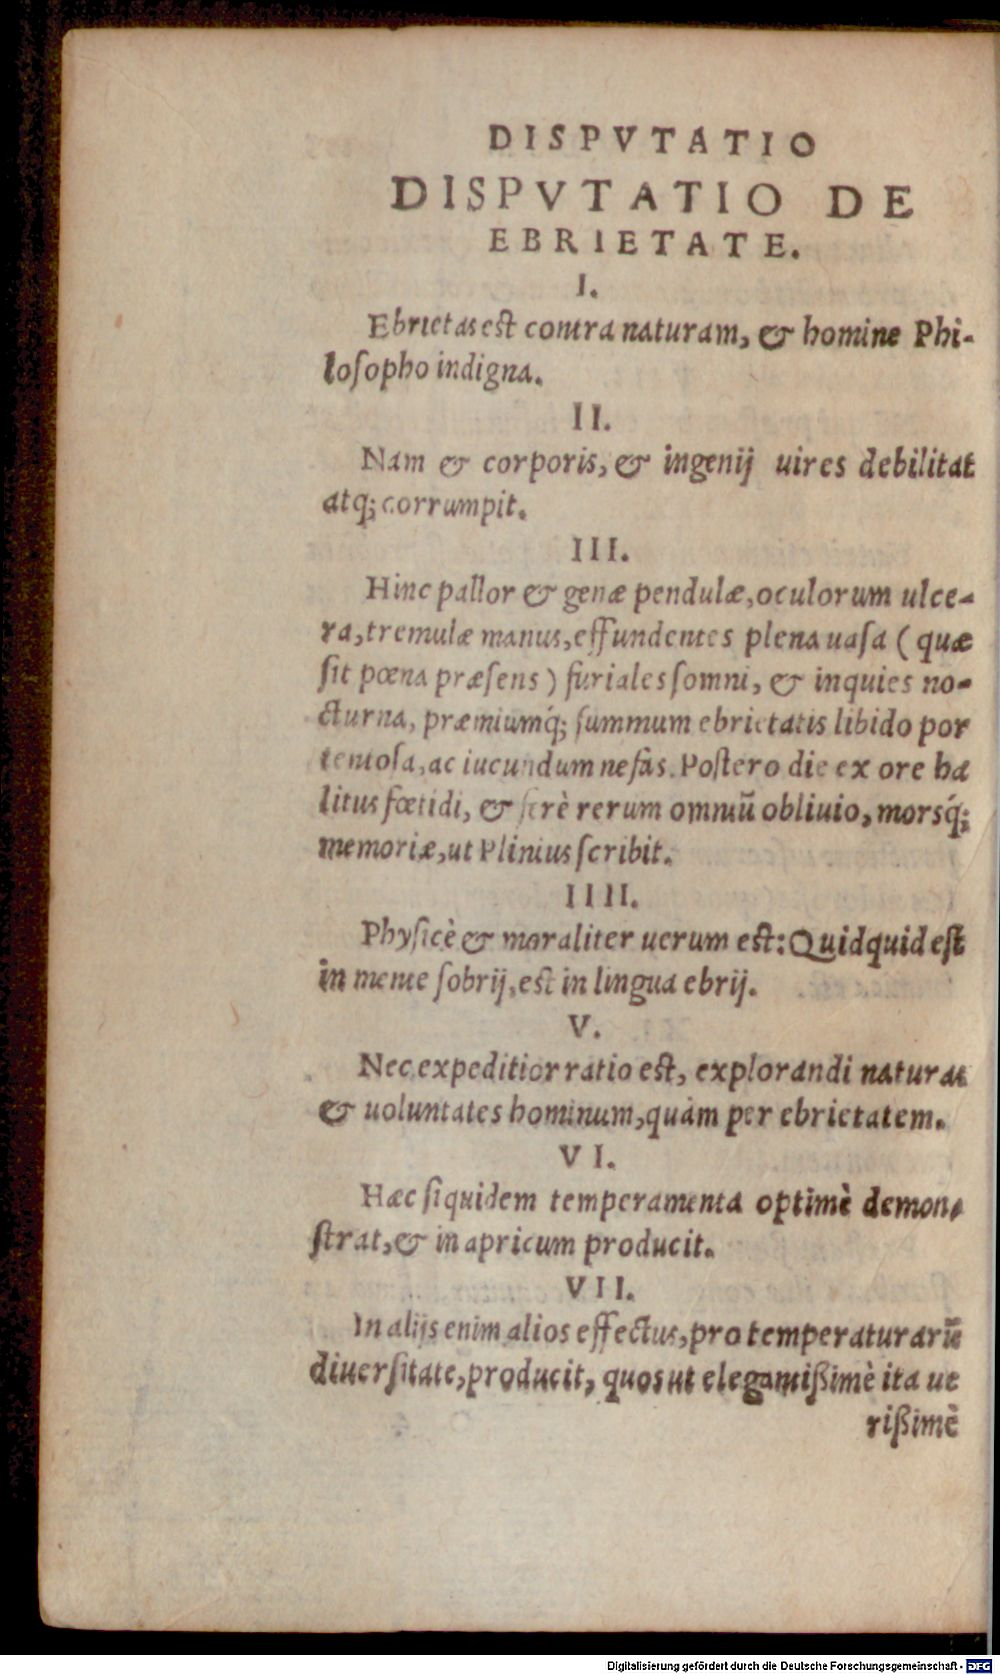 DISPVTATIO
DISPVTATIO DE
EBRIETATE.
I.
Ebrietas eſt contra naturam, & homine Phi-
loſopho indigna.
II.
Nam & corporis, & ingenij uires debilitat
atq; corrumpit.
III.
Hinc pallor & genæ pendulæ, oculorum ulce-
ra, tremulæ manus, effundentes plena uaſa (quæ
ſit pœna præſens) furiales ſomni, & inquies no-
cturna, præmiumq́; ſummum ebrietatis libido por
tentoſa, ac iucundum nefas. Poſtero die ex ore ha
litus fœtidi, & ferè rerum omniū obliuio, morsq́;
memoriæ, ut Plinius ſcribit.
IIII.
Phyſicè & moraliter uerum eſt: Quidquid eſt
in mente ſobrij, eſt in lingua ebrij.
V.
Nec expeditior ratio eſt, explorandi naturas
& uoluntates hominum, quàm per ebrietatem.
VI.
Hæc ſiquidem temperamenta optimè demon-
ſtrat, & in apricum producit.
VII.
In alijs enim alios effectus, pro temperaturarū
diuerſitate, producit, quos ut elegantißimè ita ue
rißimè
Digitalisierung gefördert durch die Deutsche Forschungsgemeinschaft - DFG